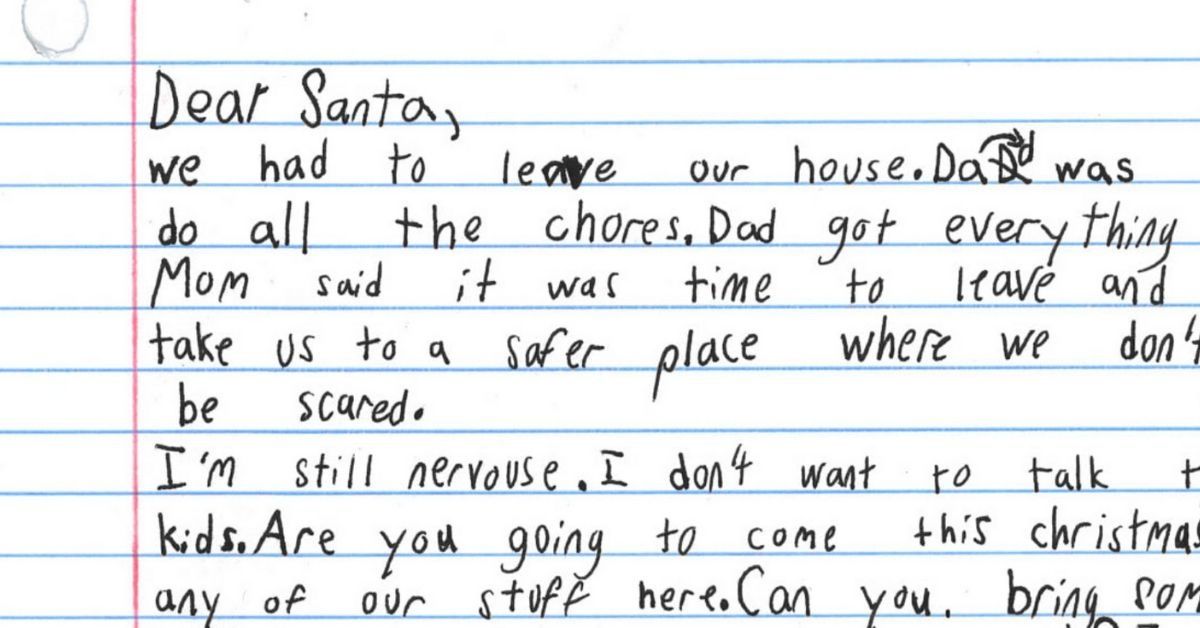 Dear Santa,
we had to leave our house.Dad was
do all the chores.Dad got everything
Mom said it was time to leave and
take us to a safer place where we don't
be scared.
I'm still nervouse.I don't want to talk t
kids.Are you going to come this christmas
any of our stuff here.Can you. bring som